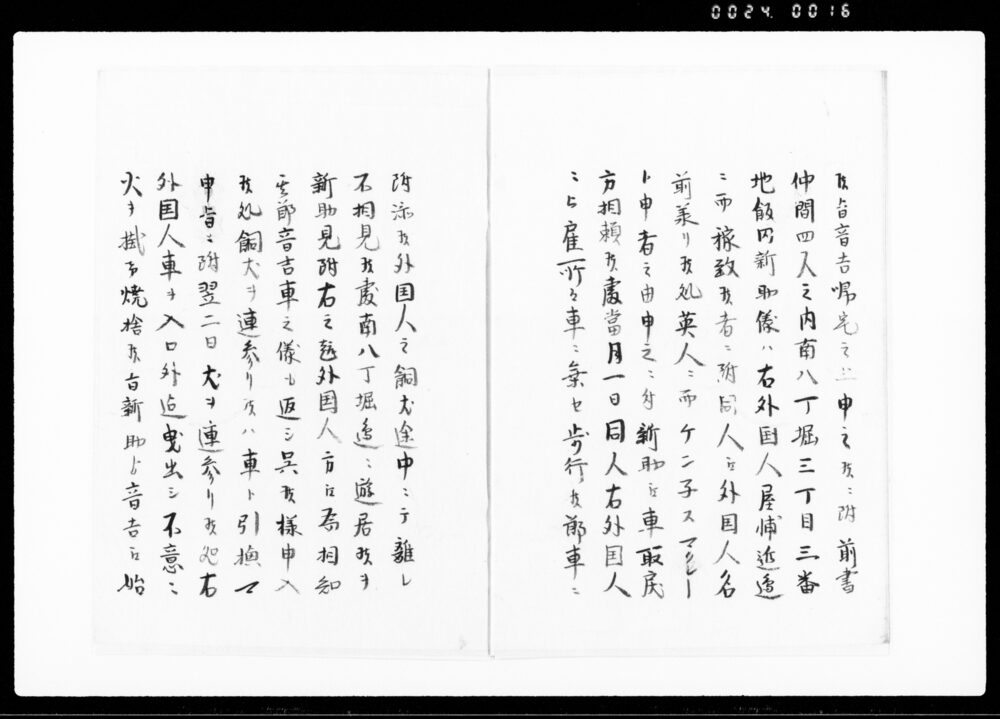 0024 0016
候旨音吉帰宅之上申之候ニ附前書
仲間四人之内南八丁堀三丁目三番
地飯田新助儀ハ右外国人屋鋪近辺
ニ而稼致候者ニ附同人ゟ外国人名
前承り候処英人ニ而ケン子スマクレー
ト申者之由申之ニ付新助ゟ車取戻
方相頼候処當月一日同人右外国人
ニ被雇所々車ニ乗セ歩行候節車ニ
附添候外国人之飼犬途中ニテ離レ
不相見候處南八丁堀辺ニ遊居候ヲ
新助見附右之趣外国人方ゟ為相知
其節音吉車之儀も返シ呉候様申入
候処飼犬ヲ連参り候ハ車ト引換マ
申旨ニ附翌二日犬ヲ連参り候処右
外国人車ヲ入口外迄曳出シ不意ニ
火ヲ掛ケ焼捨候旨新助ゟ音吉ゟ始